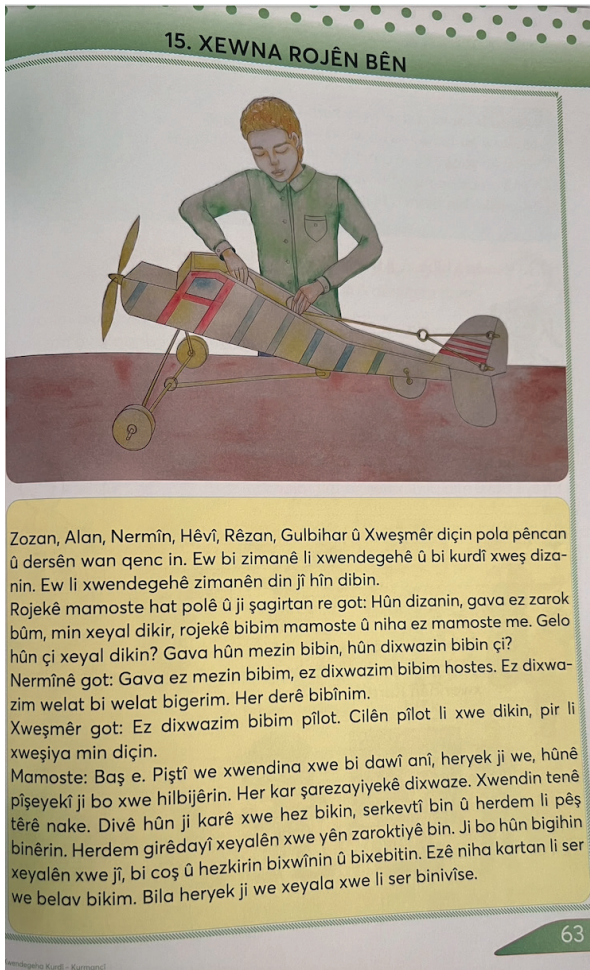 15. XEWNA ROJÊN BÊN
Zozan, Alan, Nermîn, Hêvî, Rêzan, Gulbihar û Xweşmêr diçin pola pêncan
û dersên wan qenc in. Ew bi zimanê li xwendegehê û bi kurdî xweş diza-
nin. Ew li xwendegehê zimanên din jî hîn dibin.
Rojekê mamoste hat polê û ji şagirtan re got: Hûn dizanin, gava ez zarok
bûm, min xeyal dikir, rojekê bibim mamoste û niha ez mamoste me. Gelo
hûn çi xeyal dikin? Gava hûn mezin bibin, hûn dixwazin bibin çi?
Nermînê got: Gava ez mezin bibim, ez dixwazim bibim hostes. Ez dixwa-
zim welat bi welat bigerim. Her derê bibînim.
Xweşmêr got: Ez dixwazim bibim pîlot. Cilên pîlot li xwe dikin, pir li
xweşiya min diçin.
Mamoste: Baş e. Piştî we xwendina xwe bi dawî anî, heryek ji we, hûnê
pîşeyekî ji bo xwe hilbijêrin. Her kar şarezayiyekê dixwaze. Xwendin tenê
têrê nake. Divê hûn ji karê xwe hez bikin, serkevtî bin û herdem li pêş
binêrin. Herdem girêdayî xeyalên xwe yên zaroktiyê bin. Ji bo hûn bigihin
xeyalên xwe jî, bi coş û hezkirin bixwînin û bixebitin. Ezê niha kartan li ser
we belav bikim. Bila heryek ji we xeyala xwe li ser binivîse.
63
Kurdî - Kurmancî